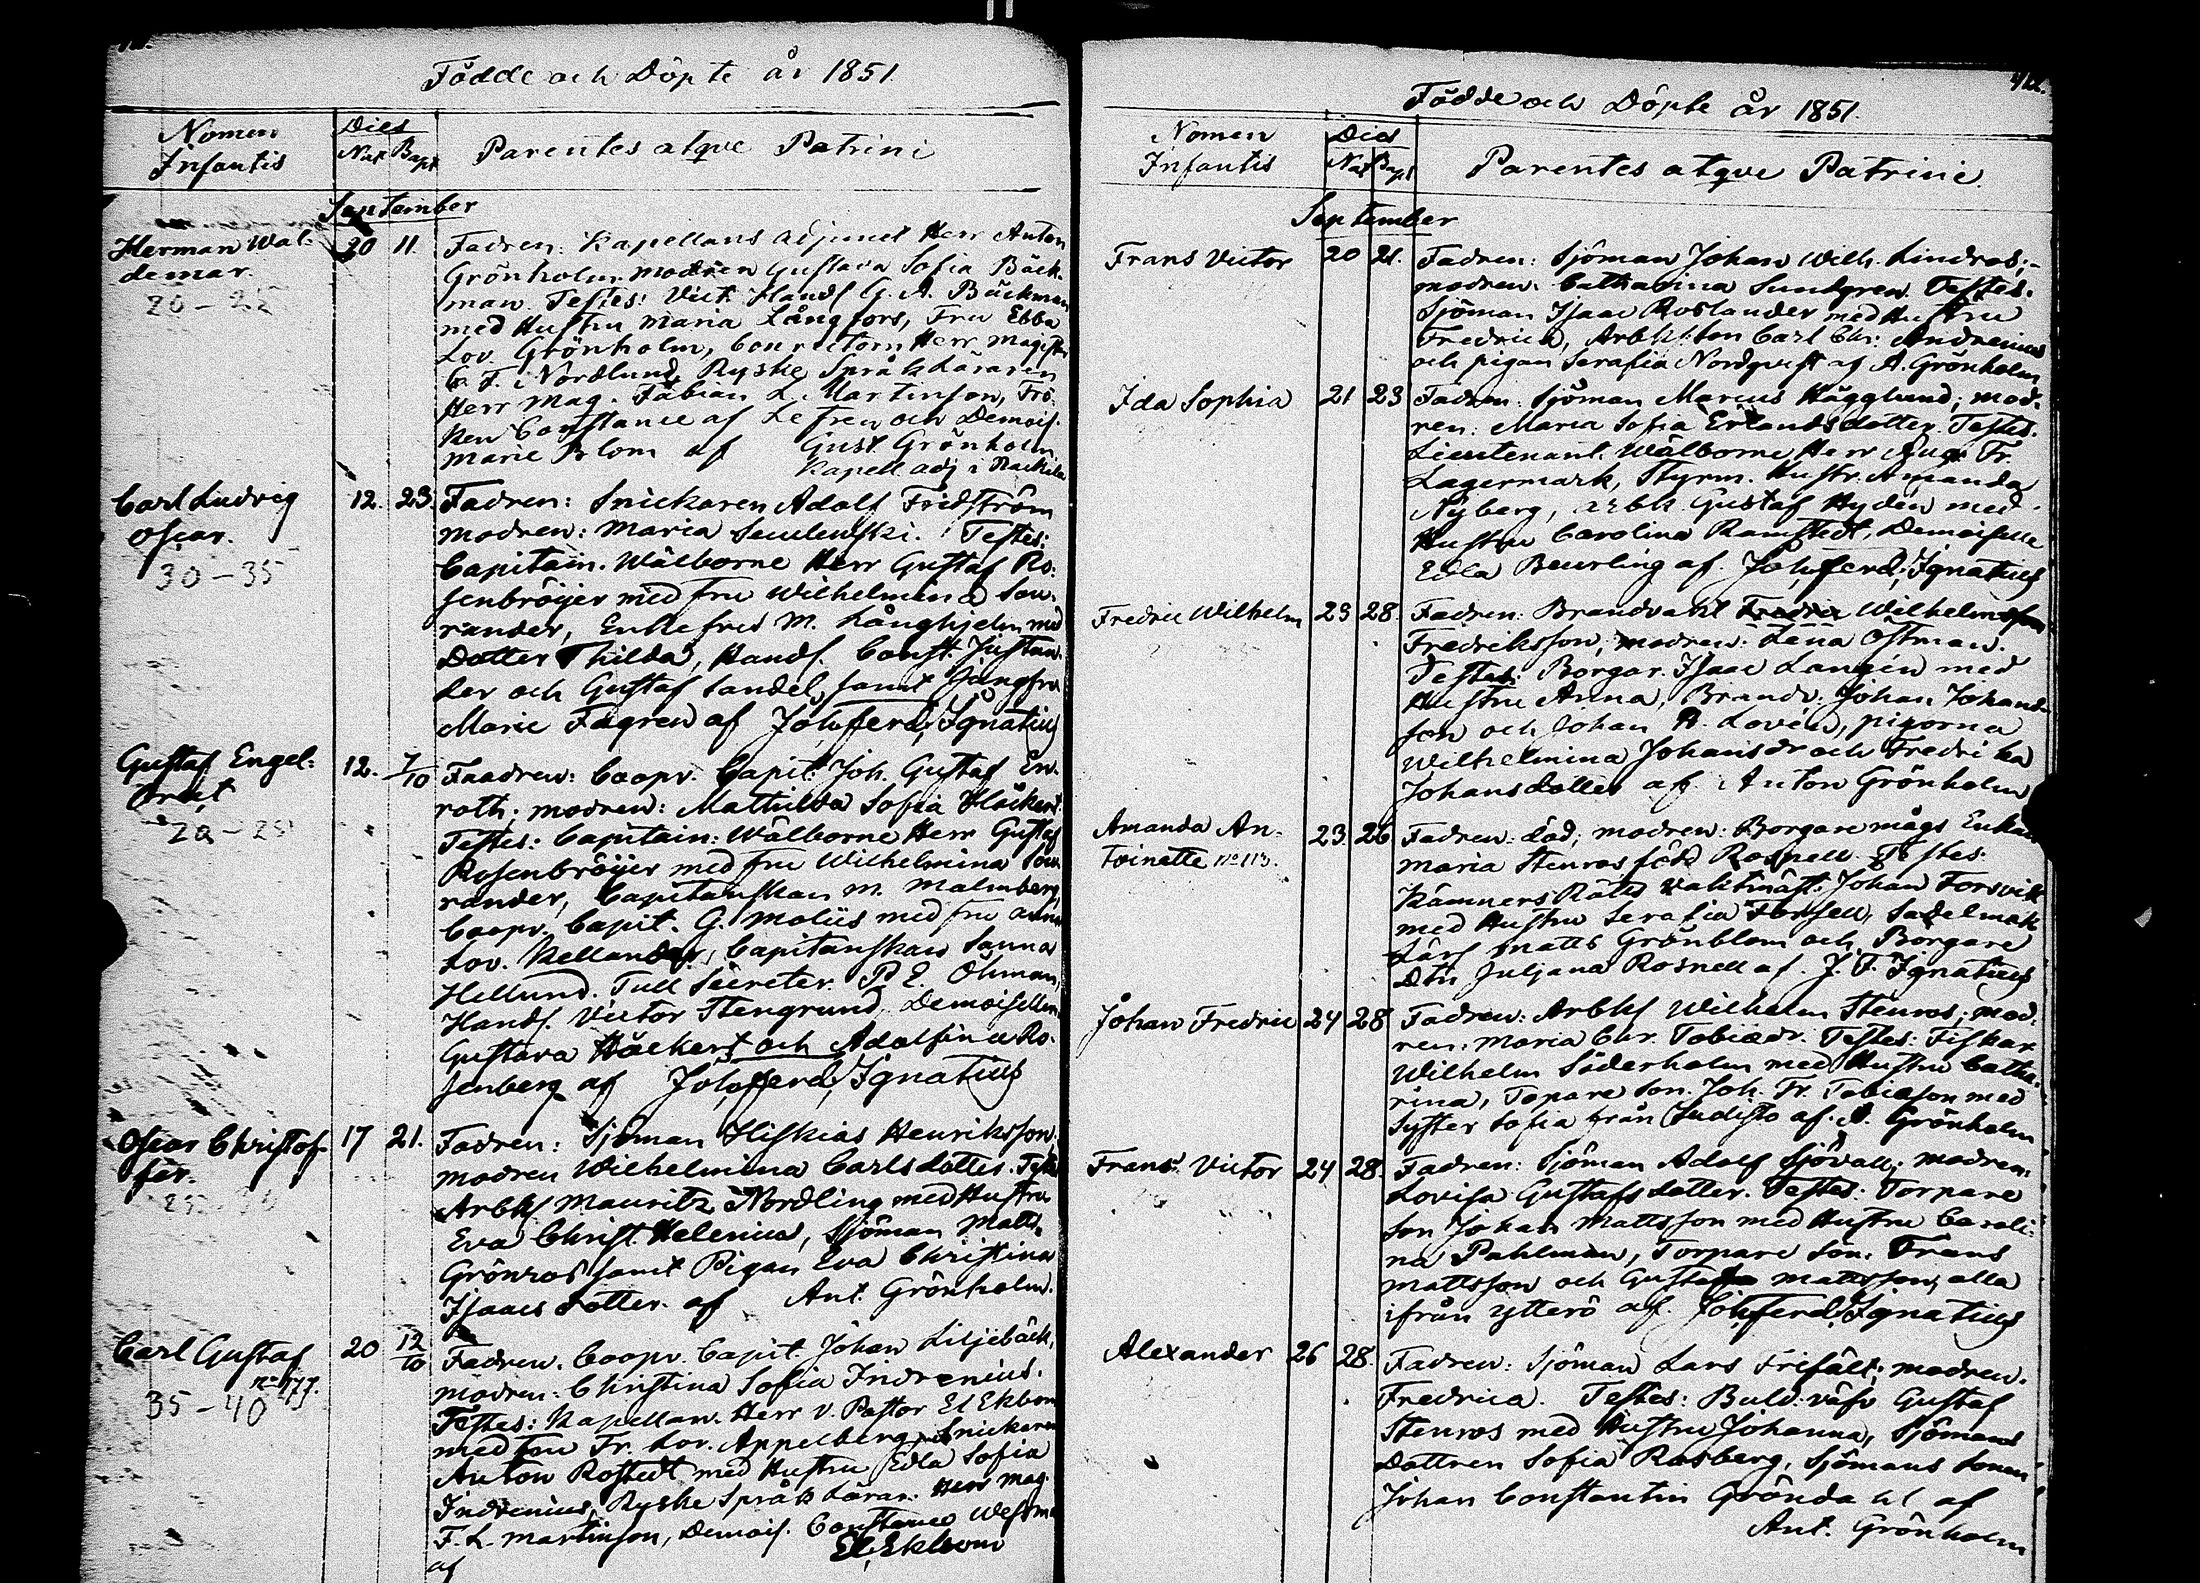 Födde och Döpte år 1851
Nomen Infantis
Dies
Nat Bapt
Parentes atqve Patrini
September
Herman Wal-
demar.
20-25
20 11.
Fadren: Kapellans adjunct Herr Anton
Grönholm modren Gustava Sofia Bäck-
man. Testes: Vict. Handl G. A. Bäckman
med Hustru Maria Långfors, Fru Ebba
Lov. Grönholm, Conrectorn Herr Magister
C. F. Nordlund, Ryske Språk Läraren
Herr Mag. Fabian L. Martinson, Frö-
ken Constance af Lefren och Demois.
Marie Blom af Gust Grönholm
Kapell. adj i
Carl Ludvig
Oscar.
30-35
12. 23.
Fadren: Snickaren Adolf Fridström
modren: Maria Testes:
Capitain. Wälborne Herr Gustaf Ro-
senbröijer med fru Wilhelmina Sou-
rander, Enkefru M. Långhjelm med
Dotter Thilda, Handl. Const. Justan-
der och Gustaf Sandel, samt Jungfru
Marie Fagren af Joh. ferd. Ignatius
Gustaf Engel-
brect
20-25
12. 7/10
Faadren: Coopv. Capit: Joh. Gustaf En-
roth; modren: Mathilda Sofia Häckert.
Testes: Capitain: Wälborne Herr Gustaf
Rosenbröijer med fru Wilhelmina Sou-
rander, Capitanskan M. Malmberg,
Coopv. Capit. G. Moliis med fru Anna
Lov. Kellander, Capitanskan Sanna
Hellund. Tull Secreter. P. E. Öhman,
Handl. Victor Stengrund, Demoisellen
Gustava Häckert och Adolfina Ro-
senberg af Joh. ferd. Ignatius
Oscar Christof-
fer.
17 21.
Fadren: Sjöman Hiskias Henriksson,
modren Wilhelmina Carlsdotter. Test
Arbkl Mauritz Nordling med Hustru
Eva Christ. Helenius, Sjöman Matts.
Grönros samt Pigan Eva Christina
Isaacs dotter. af Ant. Grönholm.
Carl Gustaf
no 177.
35-40
20 12/10
Fadren. Coopv. Capit. Johan Liljebäck,
modren: Christina Sofia Indrenius.
Testes: Kapellan. Herr v. Pastor El Ekbom
med fru Fr. Lov. Appelberg, Snickaren
Anton Rostedt med Hustru Edla Sofia
Indrenius, Ryske Språk Lärar. Herr Mag.
F. L. Martinson, Demois. Constance
af El, Ekbom
Födde och Döpte år 1851.
Nomen Infantis
Dies
Nat Bapt
Parentes atqve Patrini.
September
Frans Victor
20 21.
Fadren: Sjöman Johan Wilh. Lindros;-
modren. Catharina Sundgren. Testes.
Sjöman Isaac Roslander med Hustru
Fredrica, Arbk:son Carl Chr: Andrenius
och pigan Serafia Nordqvist af A. Grönholm
Ida Sophia
21 23
Fadren: Sjöman Marcus Hägglund; mod-
ren: Maria Sofia Erlandsdotter. Testes.
Lieutenant. Wälborne Herr Aug. Fr.
Lagermark, Styrm. Hustr. Amanda
Nyberg, arbk. Gustaf Hyden med
Hustru Carolina Ramstedt, Demoiselle
Edla Beurling af. Joh. ferd. Ignatius
Fredric Wilhelm
23 28.
Fadren: Brandvakt Wilhelmsson
Fredriksson; modren: Lena Östman.
Testes: Borgar. Isaac Langén med
Hustru Anna, Brandv: Johan Johans-
son och Johan A. Lovén, pigorna
Wilhelmina Johansdr och Fredrika
Johansdotter af. Anton Grönholm
Amanda An-
toinette no 113.
23 26
Fadren: död; modren: Borgare mågs Enkan
Maria Stenros född Rosnell. Testes.
Kämners Räts Vaktmäst. Johan Forsvik
med Hustru Serafia Forssell, Sadelmak
Lärl Matts Grönblom och Borgare
Dtr Juljana Rosnell af. J. F. Ignatius
Johan Fredric
24 28
Fadren: Arbkl Wilhelm Stenros; mod-
ren: Maria Chr. Tobiædr. Testes: Fiskar.
Wilhelm Söderholm med Hustru Catha-
rina, Torpare Son. Joh. Fr. Tobiæson med
Syster Sofia från af. A. Grönholm
Frans Victor
24 28.
Fadren: Sjöman Adolf Sjövall; modren
Lovisa Gustafsdotter. Testes: Torpare
Son Johan Mattsson med Hustru Caroli-
na Pahlman, Torpare Son. Frans
Mattsson och Gustaf Mattsson, alla
ifrån Ytterö af. Joh. ferd. Ignatius
Alexander
26 28.
Fadren: Sjöman Lars Frifält; modren.
Fredrica. Testes: Buld. väfv Gustaf
Stenros med Hustru Johanna, Sjömans
Dottren Sofia Rosberg, Sjömans Sonen
Johan Constantin Gröndahl af
Ant. Grönholm